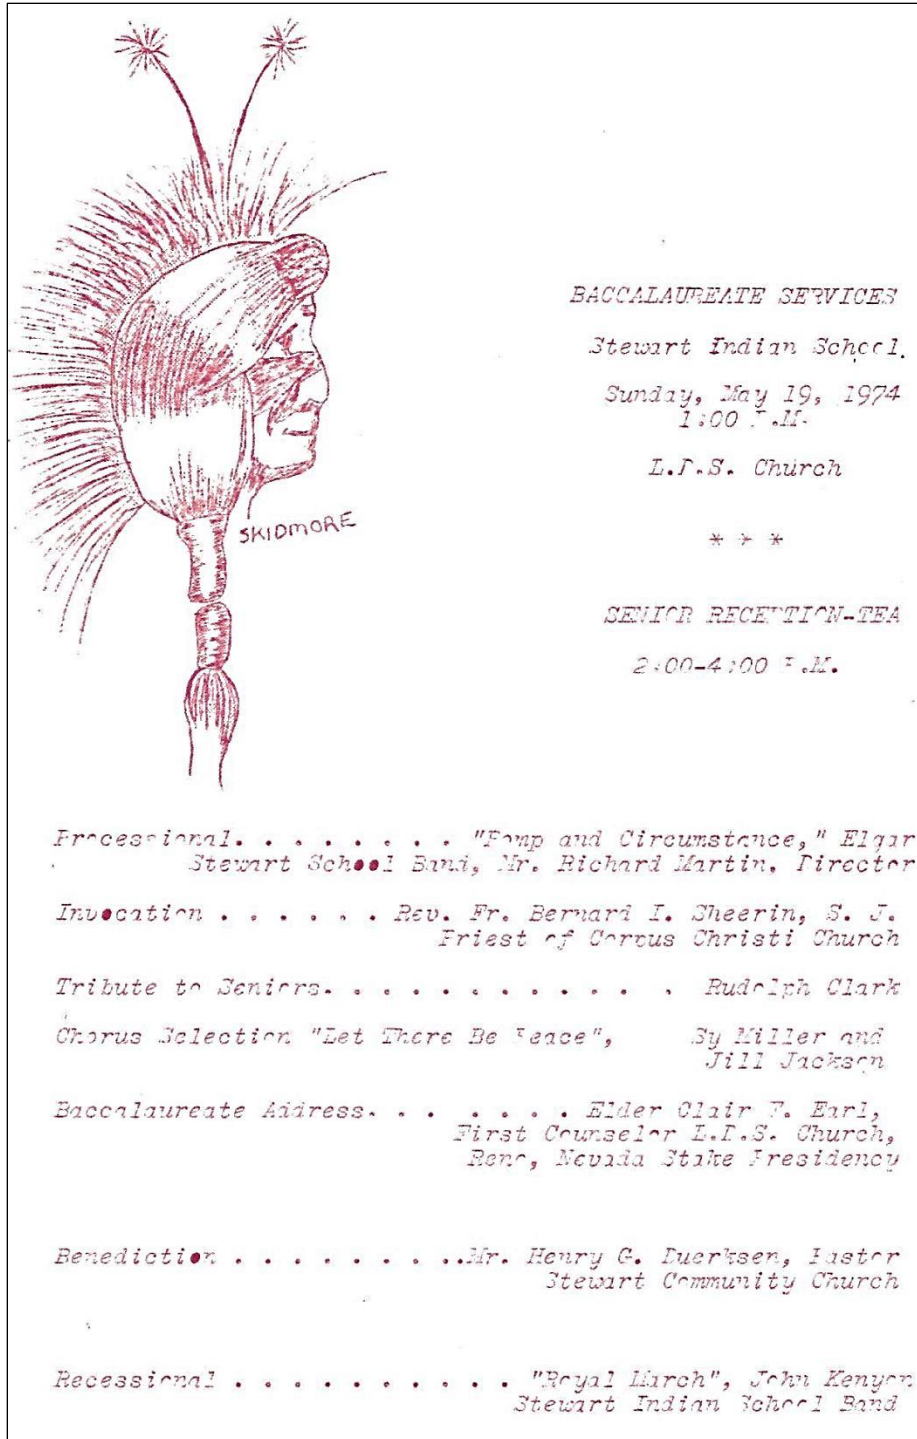 BACCALAUREATE SERVICES
Stewart Indian School
Sunday, May 19, 1974
1:00 P.M.
L.D.S. Church
* * *
SKIDMORE
SENIOR RECEPTION-TEA
2:00-4:00 P.M.
Processional. . . . . . . . "Pomp and Circumstance," Elgar
Stewart School Band, Mr. Richard Martin, Director
Invocation . . . . . . Rev. Fr. Bernard I. Sheerin, S. J.
Priest of Corpus Christi Church
Tribute to Seniors. . . . . . . . . . . . . Rudolph Clark
Chorus Selection "Let There Be Peace", Sy Miller and
Jill Jackson
Baccalaureate Address. . . . . . . Elder Clair F. Earl,
First Counselor L.D.S. Church,
Reno, Nevada Stake Presidency
Benediction . . . . . . . . ..Mr. Henry G. Duerksen, Pastor
Stewart Community Church
Recessional . . . . . . . . . . "Royal March", John Kenyon
Stewart Indian School Band